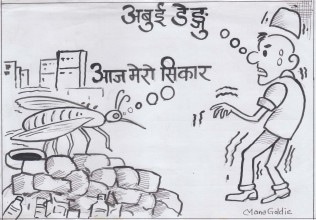 अबुई डेङ्गु
आज मेरो सिकार
Mana Goldie